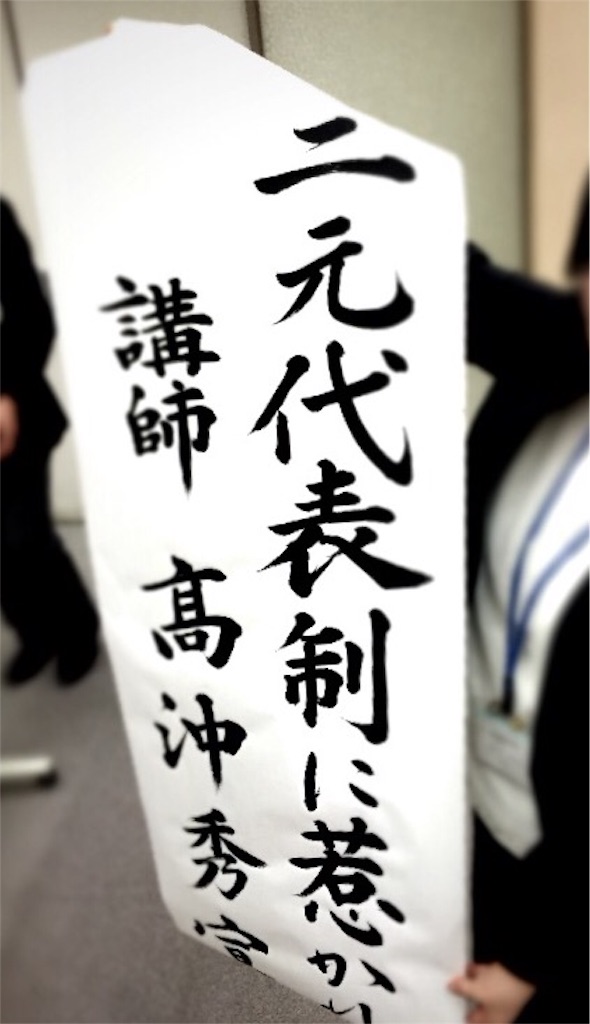 二元代表制に惹かれ
講師 髙沖秀宣